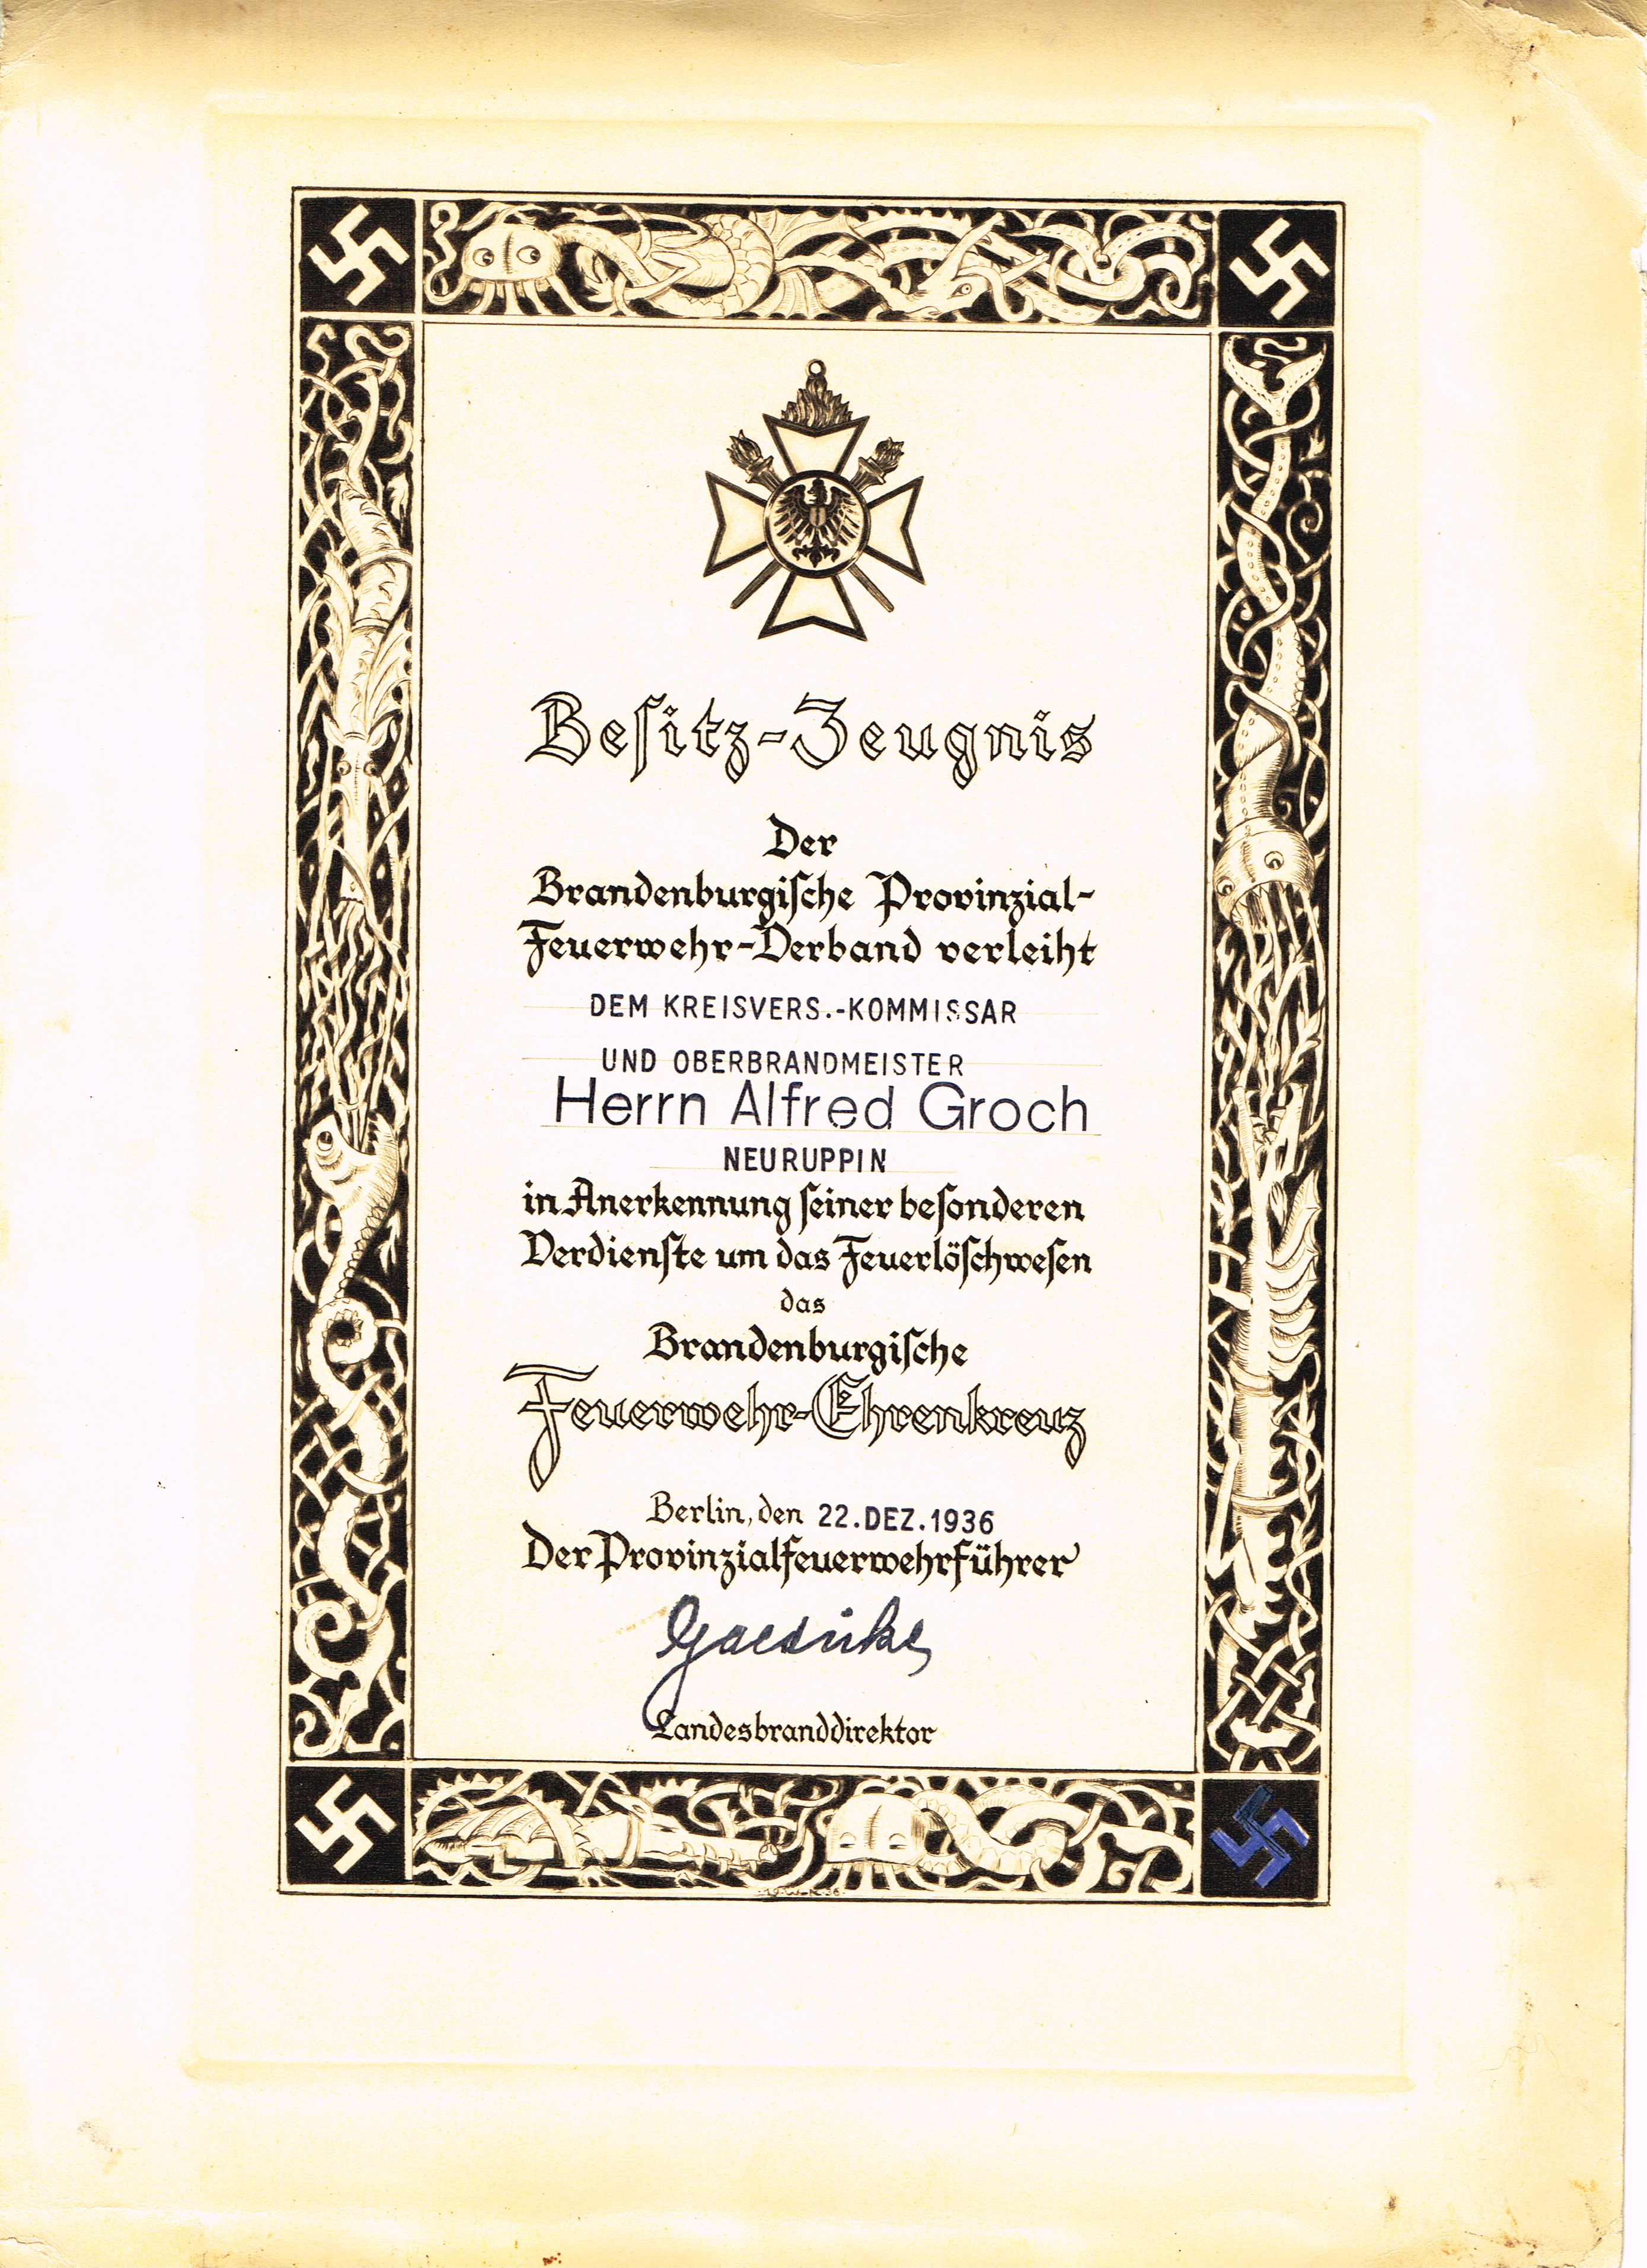 Besitz-Zeugnis
Der
Brandenburgische Provinzial-
Feuerwehr-Verband verleiht
DEM KREISVERS.-KOMMISSAR
UND OBERBRANDMEISTER
Herrn Alfred Groch
NEURUPPIN
in Anerkennung seiner besonderen
Verdienste um das Feuerlöschwesen
das
Brandenburgische
Feuerwehr-Ehrenkreuz
Berlin, den 22.DEZ.1936
Der Provinzialfeuerwehrführer
Landesbranddirektor